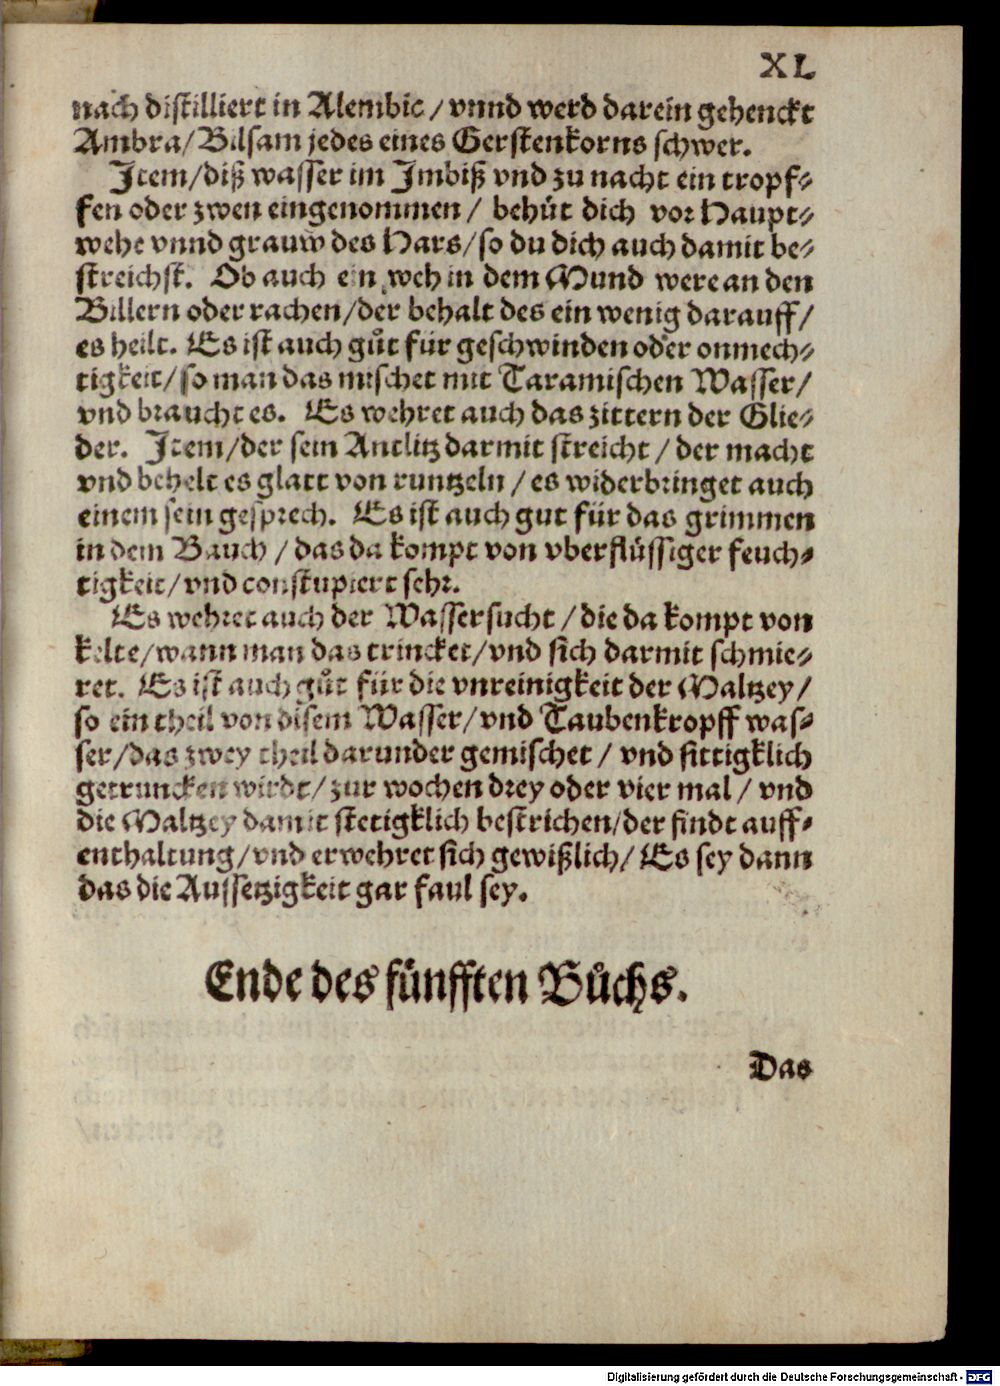 XL
nach distilliert in Alembic / vnnd werd darein gehenckt
Ambra / Bilsam jedes eines Gerstenkorns schwer.
Item / diß wasser im Imbiß vnd zu nacht ein tropf-
fen oder zwen eingenommen / behüt dich vor Haupt-
wehe vnnd grauw des Hars / so du dich auch damit be-
streichst. Ob auch ein weh in dem Mund were an den
Billern oder rachen / der behalt des ein wenig darauff /
es heilt. Es ist auch gůt für geschwinden oder onmech-
tigkeit / so man das mischet mit Taramischen Wasser /
vnd braucht es. Es wehret auch das zittern der Glie-
der. Item / der sein Antlitz darmit streicht / der macht
vnd behelt es glatt von runtzeln / es widerbringet auch
einem sein gesprech. Es ist auch gut für das grimmen
in dem Bauch / das da kompt von vberflüssiger feuch-
tigkeit / vnd constupiert sehr.
Es wehret auch der Wassersucht / die da kompt von
kelte / wann man das trincket / vnd sich darmit schmie-
ret. Es ist auch gůt für die vnreinigkeit der Maltzey /
so ein theil von disem Wasser / vnd Taubenkropff was-
ser / das zwey theil darunder gemischet / vnd sittigklich
getruncken wirdt / zur wochen drey oder vier mal / vnd
die Maltzey damit stetigklich bestrichen / der findt auff-
enthaltung / vnd erwehret sich gewißlich / Es sey dann
das die Aussetzigkeit gar faul sey.
Ende des fünfften Bůchs.
Das
Digitalisierung gefördert durch die Deutsche Forschungsgemeinschaft - DFG